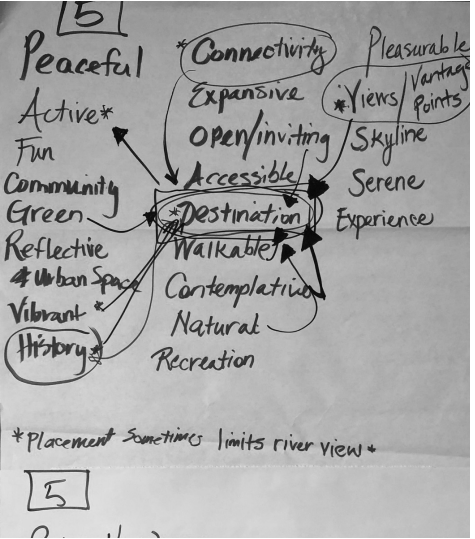 5
Peaceful
Active*
Fun
Community
Green
Reflective
* Urban Space
Vibrant *
History *
* Connectivity
Expansive
Open/inviting
Accessible
* Destination
Walkable
Contemplative
Natural
Recreation
Pleasurable
* Views/Vantage
Points
Skyline
Serene
Experience
*Placement Sometimes limits river view*
5